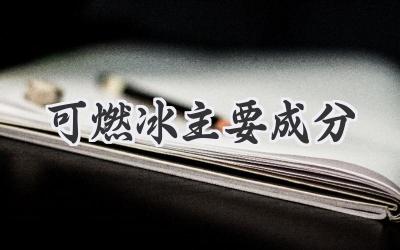 可燃冰主要成分